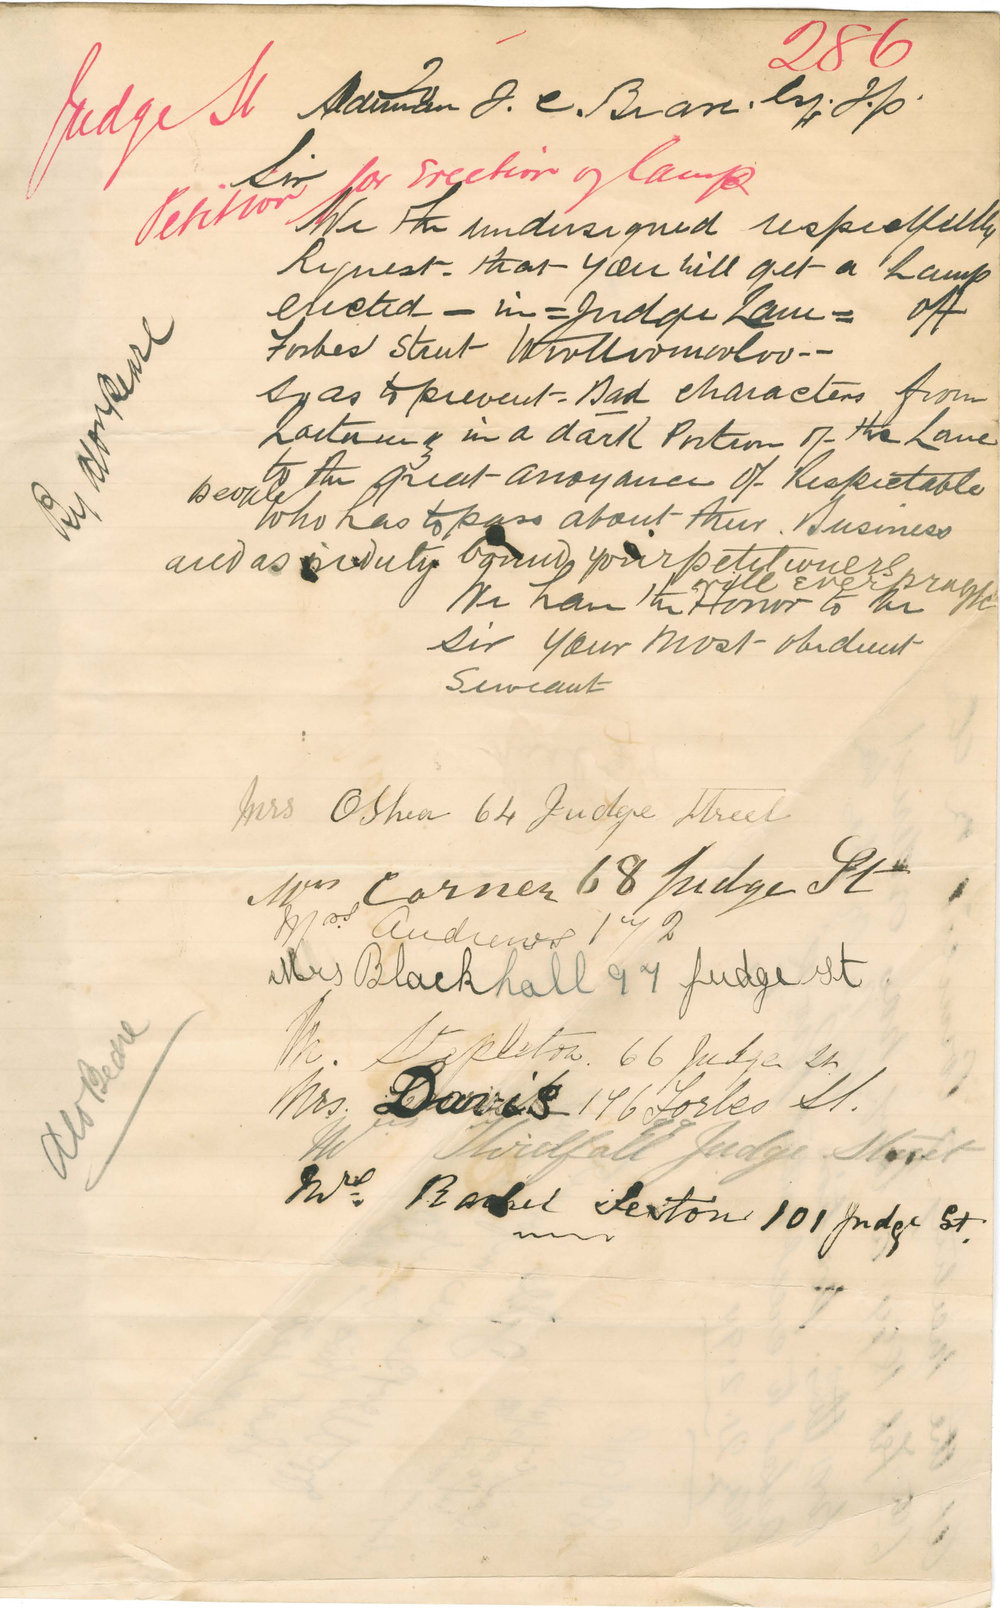 286
Judge St
Alderman J. C. Beare. Esq. J.P.
Sir
Petition for Erection of Lamp
We the undersigned respectfully
Request that you will get a Lamp
erected - in = Judge Lane = off
Forbes Street Woolloomooloo--
so as to prevent Bad characters from
Loitering in a dark Portion of the Lane
to the great annoyance of Respectable
people
who has to pass about their Business
and as in duty bound your petitioners
will ever pray &c
We have the Honor to be
Sir your most obedient
Servant
Mrs OShea 64 Judge Street
Mrs Corner 68 Judge St
Mrs Andrews 172
Mrs Blackhall 97 Judge st
M. Stapleton. 66 Judge St
Mrs. Davis 146 Forbes St.
Thridfall Judge Street
Mrs. Rachel Sexton 101 Judge St.
Ald Beare